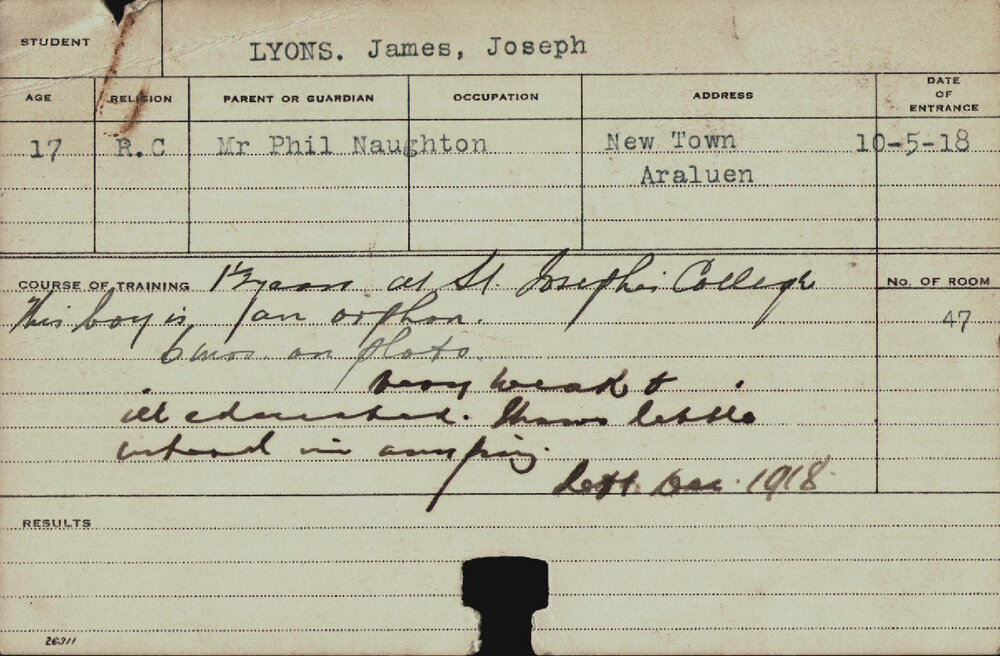 STUDENT LYONS. James, Joseph
AGE RELIGION PARENT OR GUARDIAN OCCUPATION ADDRESS DATE OF ENTRANCE
17 R.C Mr Phil Naughton New Town 10-5-18
Araluen
COURSE OF TRAINING 1½ years at St. Joseph's College No. OF ROOM
This boy is an orphan. 47
6 mos. on
very weak &
ill educated. Shows little
interest in anything.
Left Dec. 1918
RESULTS
26311